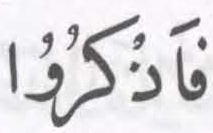 فَاذْكُرُوْا